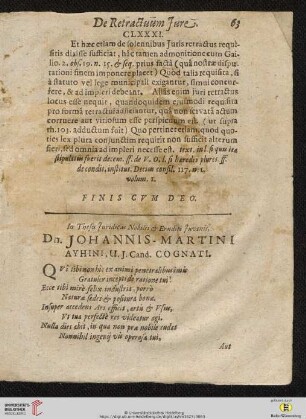 De Retractuum Jure. 63
CLXXXI.
Et hæc etiam de solennibus Juris retractus requi-
sitis dixisse sufficiat, hac tamen admonitione cum Gai-
lio. 2. obs. 19. n. 15. & seq. prius facta (qua nostræ dispu-
tationi finem imponere placet) Quod talia requisita, si
à statuto vel lege municipali exigantur, simul concur-
rere, & ad impleri debeant. Alias enim juri retractus
locus esse nequit, quandoquidem ejusmodi requisita
pro forma retractus
corruere aut vitiosum esse perspicuum est. (ut supr.
th. 103. adductum fuit) Quo pertinet etiam, quod quo-
ties lex plura conjunctim requirit non sufficit alterum
fieri, sed omnia ad impleri necesse est.
stipulatus fueris decem. ff. de V. O. l. si heredi plures. ff.
de condit. institut. Decius consil. 117. n. 1.
volum. 1.
FINIS CVM DEO.
In Thesin Juridicam Nobilis & Eruditi Juvenis,
Dn. JOHANNIS-MARTINI
AVHINI, U. J. Cand. COGNATI.
QVi tibi non hic ex animi penetralibus imis
Gratuler incepti de ratione tui?
Ecce tibi mirè felix industria, porrò
Natura sedet & pectora bona.
Insuper accedens Ars efficit, artis & Vsus,
Vt tua perfectè res videatur agi.
Nulla dies abit, in qua non præ nobile cudas
Nummibil ingenj vii operaja tui,
Aut